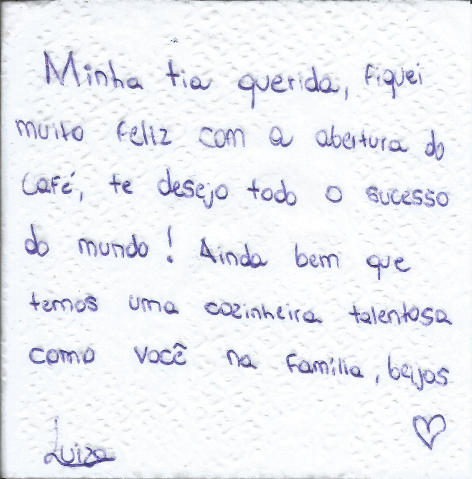 Minha tia querida, fiquei
muito feliz com a abertura do
café, te desejo todo o sucesso
do mundo! Ainda bem que
temos uma cozinheira talentosa
como você na família, beijos
Luiza